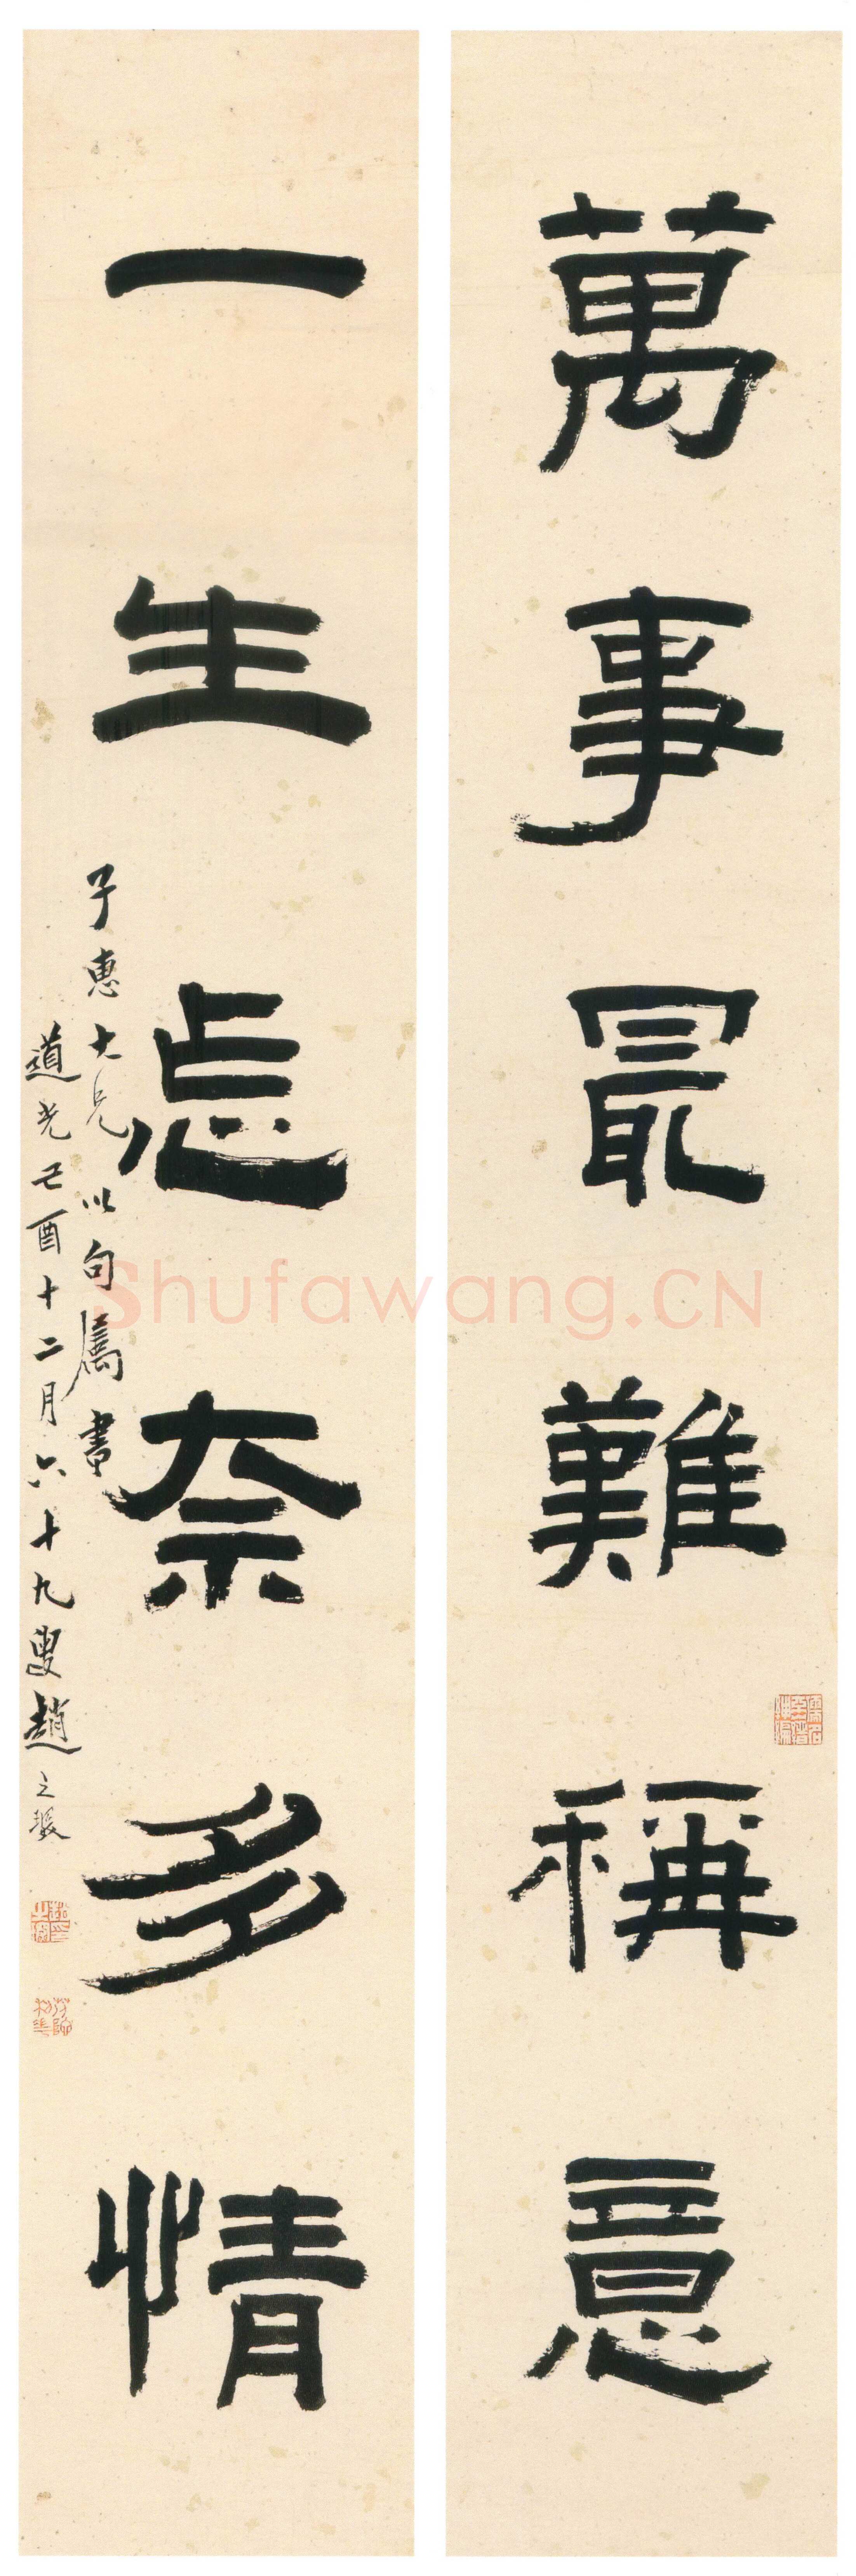 萬事最難稱意
一生怎奈多情
子惠大兄以句屬書
道光己酉十二月六十九叟趙之琛
Shufawang.CN